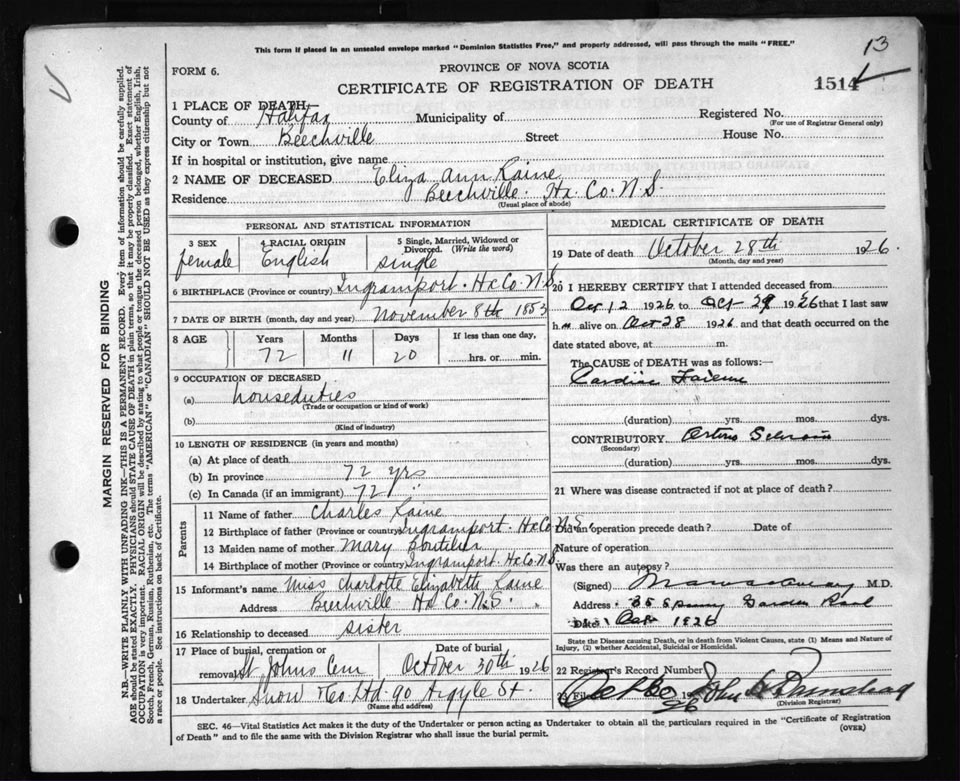 This form if placed in an unsealed envelope marked "Dominion Statistics Free," and properly addressed, will pass through the mails "FREE."
13
FORM 6.
PROVINCE OF NOVA SCOTIA
CERTIFICATE OF REGISTRATION OF DEATH
1514
1 PLACE OF DEATH,—
County of Halifax Municipality of Registered No.
(For use of Registrar General only)
City or Town Beechville Street House No.
If in hospital or institution, give name
2 NAME OF DECEASED Eliza Ann Raine
Residence Beechville. Hx. Co. N.S.
(Usual place of abode)
PERSONAL AND STATISTICAL INFORMATION
3 SEX 4 RACIAL ORIGIN 5 Single, Married, Widowed or Divorced. (Write the word)
female English single
6 BIRTHPLACE (Province or country) Ingramport. Hx Co. N.S.
7 DATE OF BIRTH (month, day and year) November 8th 1853
8 AGE Years Months Days If less than one day,
72 11 20 hrs. or min.
9 OCCUPATION OF DECEASED
(a) houseduties
(Trade or occupation or kind of work)
(b)
(Kind of industry)
10 LENGTH OF RESIDENCE (in years and months)
(a) At place of death
(b) In province 72 yrs
(c) In Canada (if an immigrant) 72 "
Parents
11 Name of father Charles Raine
12 Birthplace of father (Province or country) Ingramport. Hx Co. N.S.
13 Maiden name of mother Mary Boutilier
14 Birthplace of mother (Province or country) Ingramport. Hx Co. N.S.
15 Informant's name Miss Charlotte Elizabeth Raine
Address Beechville Hx Co. N.S.
16 Relationship to deceased sister
17 Place of burial, cremation or removal Date of burial
St Johns Cem October 30th 1926
18 Undertaker Snow & Co. Ltd. 90 Argyle St.
(Name and address)
MEDICAL CERTIFICATE OF DEATH
19 Date of death October 28th 1926.
(Month, day and year)
20 I HEREBY CERTIFY that I attended deceased from
Oct 12 1926 to Oct 29 1926 that I last saw
h alive on Oct 28 1926 and that death occurred on the
date stated above, at m.
The CAUSE OF DEATH was as follows:
Cardiac Failure
(duration) yrs. mos. dys.
CONTRIBUTORY
(Secondary)
(duration) yrs. mos. dys.
21 Where was disease contracted if not at place of death?
Did an operation precede death? Date of
Nature of operation
Was there an autopsy?
(Signed) M.D.
Address 35 Spring Garden Road
Date 1926
State the Disease causing Death, or in death from Violent Causes, state (1) Means and Nature of Injury, (2) whether Accidental, Suicidal or Homicidal.
22 Registrar's Record Number
23 Filed 19 John
(Division Registrar)
SEC. 46—Vital Statistics Act makes it the duty of the Undertaker or person acting as Undertaker to obtain all the particulars required in the "Certificate of Registration
of Death" and to file the same with the Division Registrar who shall issue the burial permit.
(OVER)
MARGIN RESERVED FOR BINDING
N.B.—WRITE PLAINLY WITH UNFADING INK—THIS IS A PERMANENT RECORD. Every item of information should be carefully supplied.
AGE should be stated EXACTLY. PHYSICIANS should STATE CAUSE OF DEATH in plain terms, so that it may be properly classified. Exact statement of
OCCUPATION is very important. RACIAL ORIGIN will be described by stating to what people or tongue the deceased person belonged, whether English, Irish,
Scotch, French, German, Russian, Ruthenian, etc. The terms "AMERICAN" or "CANADIAN" SHOULD NOT BE USED as they express citizenship but not
a race or people. See instructions on back of Certificate.